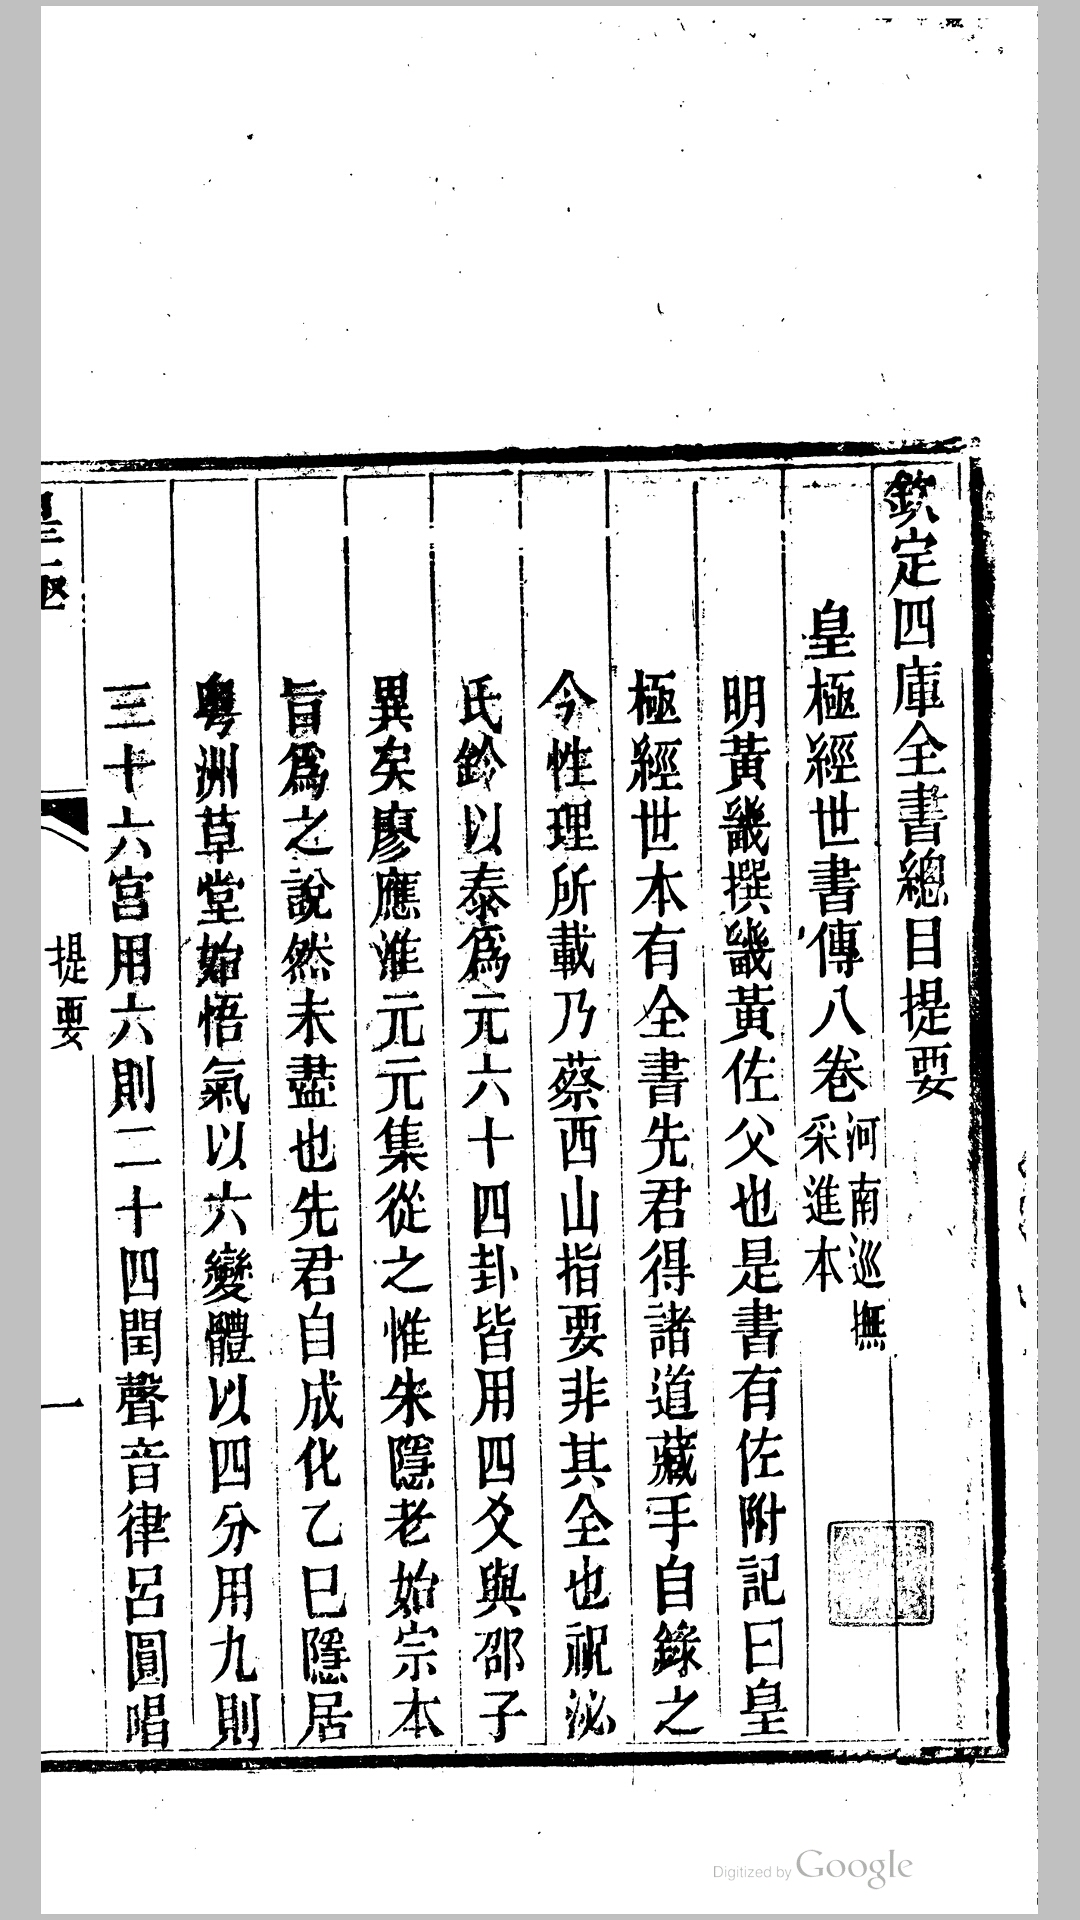 欽定四庫全書總目提要
皇極經世書傳八卷河南巡撫采進本
明黃畿撰畿黃佐父也是書有佐附記曰皇
極經世本有全書先君得諸道藏手自錄之
今性理所載乃蔡西山指要非其全也祝泌
氏鈐以泰爲元六十四卦皆用四爻與邵子
異矣廖應淮元元集從之惟朱隱老始宗本
旨爲之說然未盡也先君自成化乙巳隱居
粵洲草堂始悟氣以六變體以四分用九則
三十六宮用六則二十四閏聲音律呂圓唱
皇極
提要
一
Digitized by Google